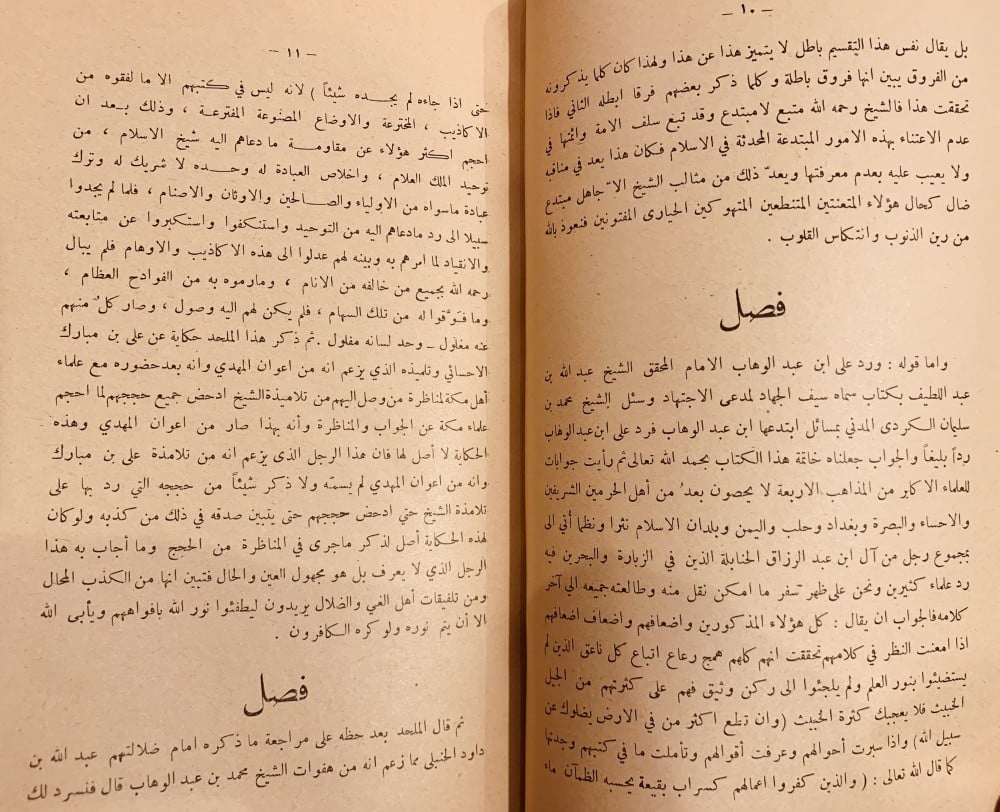 — ١٠ —
بل يقال نفس هذا التقسيم باطل لا يتميز هذا عن هذا ولهذا كان كلما يذكرونه
من الفروق يبين انها فروق باطلة وكلما ذكر بعضهم فرقا ابطله الثاني فاذا
تحققت هذا فالشيخ رحمه الله متبع لا مبتدع وقد تبع سلف الامة وائمتها في
عدم الاعتناء بهذه الامور المبتدعة المحدثة في الاسلام فكان هذا يعد في مناقبه
ولا يعيب عليه بعدم معرفتها ويعدّ ذلك من مثالب الشيخ الا جاهل مبتدع
ضال كحال هؤلاء المتعنتين المتنطعين المتهوكين الحيارى المفتونين فنعوذ بالله
من رين الذنوب وانتكاس القلوب .
فصل
واما قوله : ورد على ابن عبد الوهاب الامام المحقق الشيخ عبد الله بن
عبد اللطيف بكتاب سماه سيف الجهاد لمدعى الاجتهاد وسئل الشيخ محمد بن
سليمان الكردى المدني بمسائل ابتدعها ابن عبد الوهاب فرد على ابن عبد الوهاب
رداً بليغاً والجواب جعلناه خاتمة هذا الكتاب بحمد الله تعالى ثم رأيت جوابات
للعلماء الاكابر من المذاهب الاربعة لا يحصون بعد من أهل الحرمين الشريفين
والاحساء والبصرة وبغداد وحلب واليمن وبلدان الاسلام نثرا ونظما أتي الى
بمجموع رجل من آل ابن عبد الرزاق الحنابلة الذين في الزبارة والبحرين فيه
رد علماء كثيرين ونحن على ظهر سفر ما امكن نقل منه وطالعته جميعه الى آخر
كلامه فالجواب ان يقال : كل هؤلاء المذكورين واضعافهم واضعاف اضعافهم
اذا امعنت النظر في كلامهم تحققت انهم كلهم همج رعاع اتباع كل ناعق الذين لم
يستضيئوا بنور العلم ولم يلجئوا الى ركن وثيق فهم على كثرتهم من الجيل
الخبيث فلا يعجبك كثرة الخبيث (وان تطع اكثر من في الارض يضلوك عن
سبيل الله) واذا سبرت أحوالهم وعرفت أقوالهم وتأملت ما في كتبهم وجدتها
كما قال الله تعالى : ( والذين كفروا اعمالهم كسراب بقيعة يحسبه الظمآن ماء
— ١١ —
حتى اذا جاءه لم يجده شيئاً ) لانه ليس في كتبهم الا ما لفقوه من
الاكاذيب ، المخترعة والاوضاع المصنوعة المفترعة ، وذلك بعد ان
احجم اكثر هؤلاء عن مقاومة ما دعاهم اليه شيخ الاسلام ، من
توحيد الملك العلام ، واخلاص العبادة له وحده لا شريك له وترك
عبادة ماسواه من الاولياء والصالحين والاوثان والاصنام ، فلما لم يجدوا
سبيلا الى رد مادعاهم اليه من التوحيد واستنكفوا واستكبروا عن متابعته
والانقياد لما امرهم به وبينه لهم عدلوا الى هذه الاكاذيب والاوهام فلم يبال
رحمه الله بجميع من خالفه من الانام ، ومارموه به من الفوادح العظام ،
وما فوّقوا له من تلك السهام ، فلم يكن لهم اليه وصول ، وصار كلٌ منهم
عنه مغلول ـ وحد لسانه مفلول . ثم ذكر هذا الملحد حكاية عن على بن مبارك
الاحسائي وتلميذه الذي يزعم انه من اعوان المهدي وانه بعد حضوره مع علماء
أهل مكة لمناظرة من وصل اليهم من تلامذة الشيخ ادحض جميع حججهم لما احجم
علماء مكة عن الجواب والمناظرة وأنه بهذا صار من اعوان المهدي وهذه
الحكاية لا أصل لها فان هذا الرجل الذى يزعم انه من تلامذة على بن مبارك
وانه من اعوان المهدي لم يسمّه ولا ذكر شيئاً من حججه التي رد بها على
تلامذة الشيخ حتي ادحض حججهم حتى يتبين صدقه في ذلك من كذبه ولوكان
لهذه الحكاية أصل لذكر ماجرى في المناظرة من الحجج وما أجاب به هذا
الرجل الذي لا يعرف بل هو مجهول العين والحال فتبين انها من الكذب المحال
ومن تلفيقات أهل الغي والضلال يريدون ليطفئوا نور الله بافواههم ويأبى الله
الا أن يتم نوره ولو كره الكافرون .
فصل
ثم قال الملحد بعد حظه على مراجعة ما ذكره امام ضلالتهم عبد الله بن
داود الحنبلى مما زعم انه من هفوات الشيخ محمد بن عبد الوهاب قال فنسرد لك